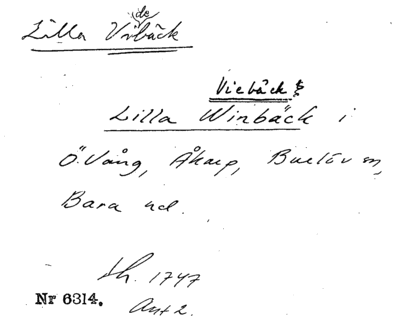 de
Lilla Vibäck
Viebäck
Lilla Winbäck i
Ö. Vång, Åkarp, Burlöv sn,
Bara hd.
Lh. 1747
Nr 6314.
Ant 2.